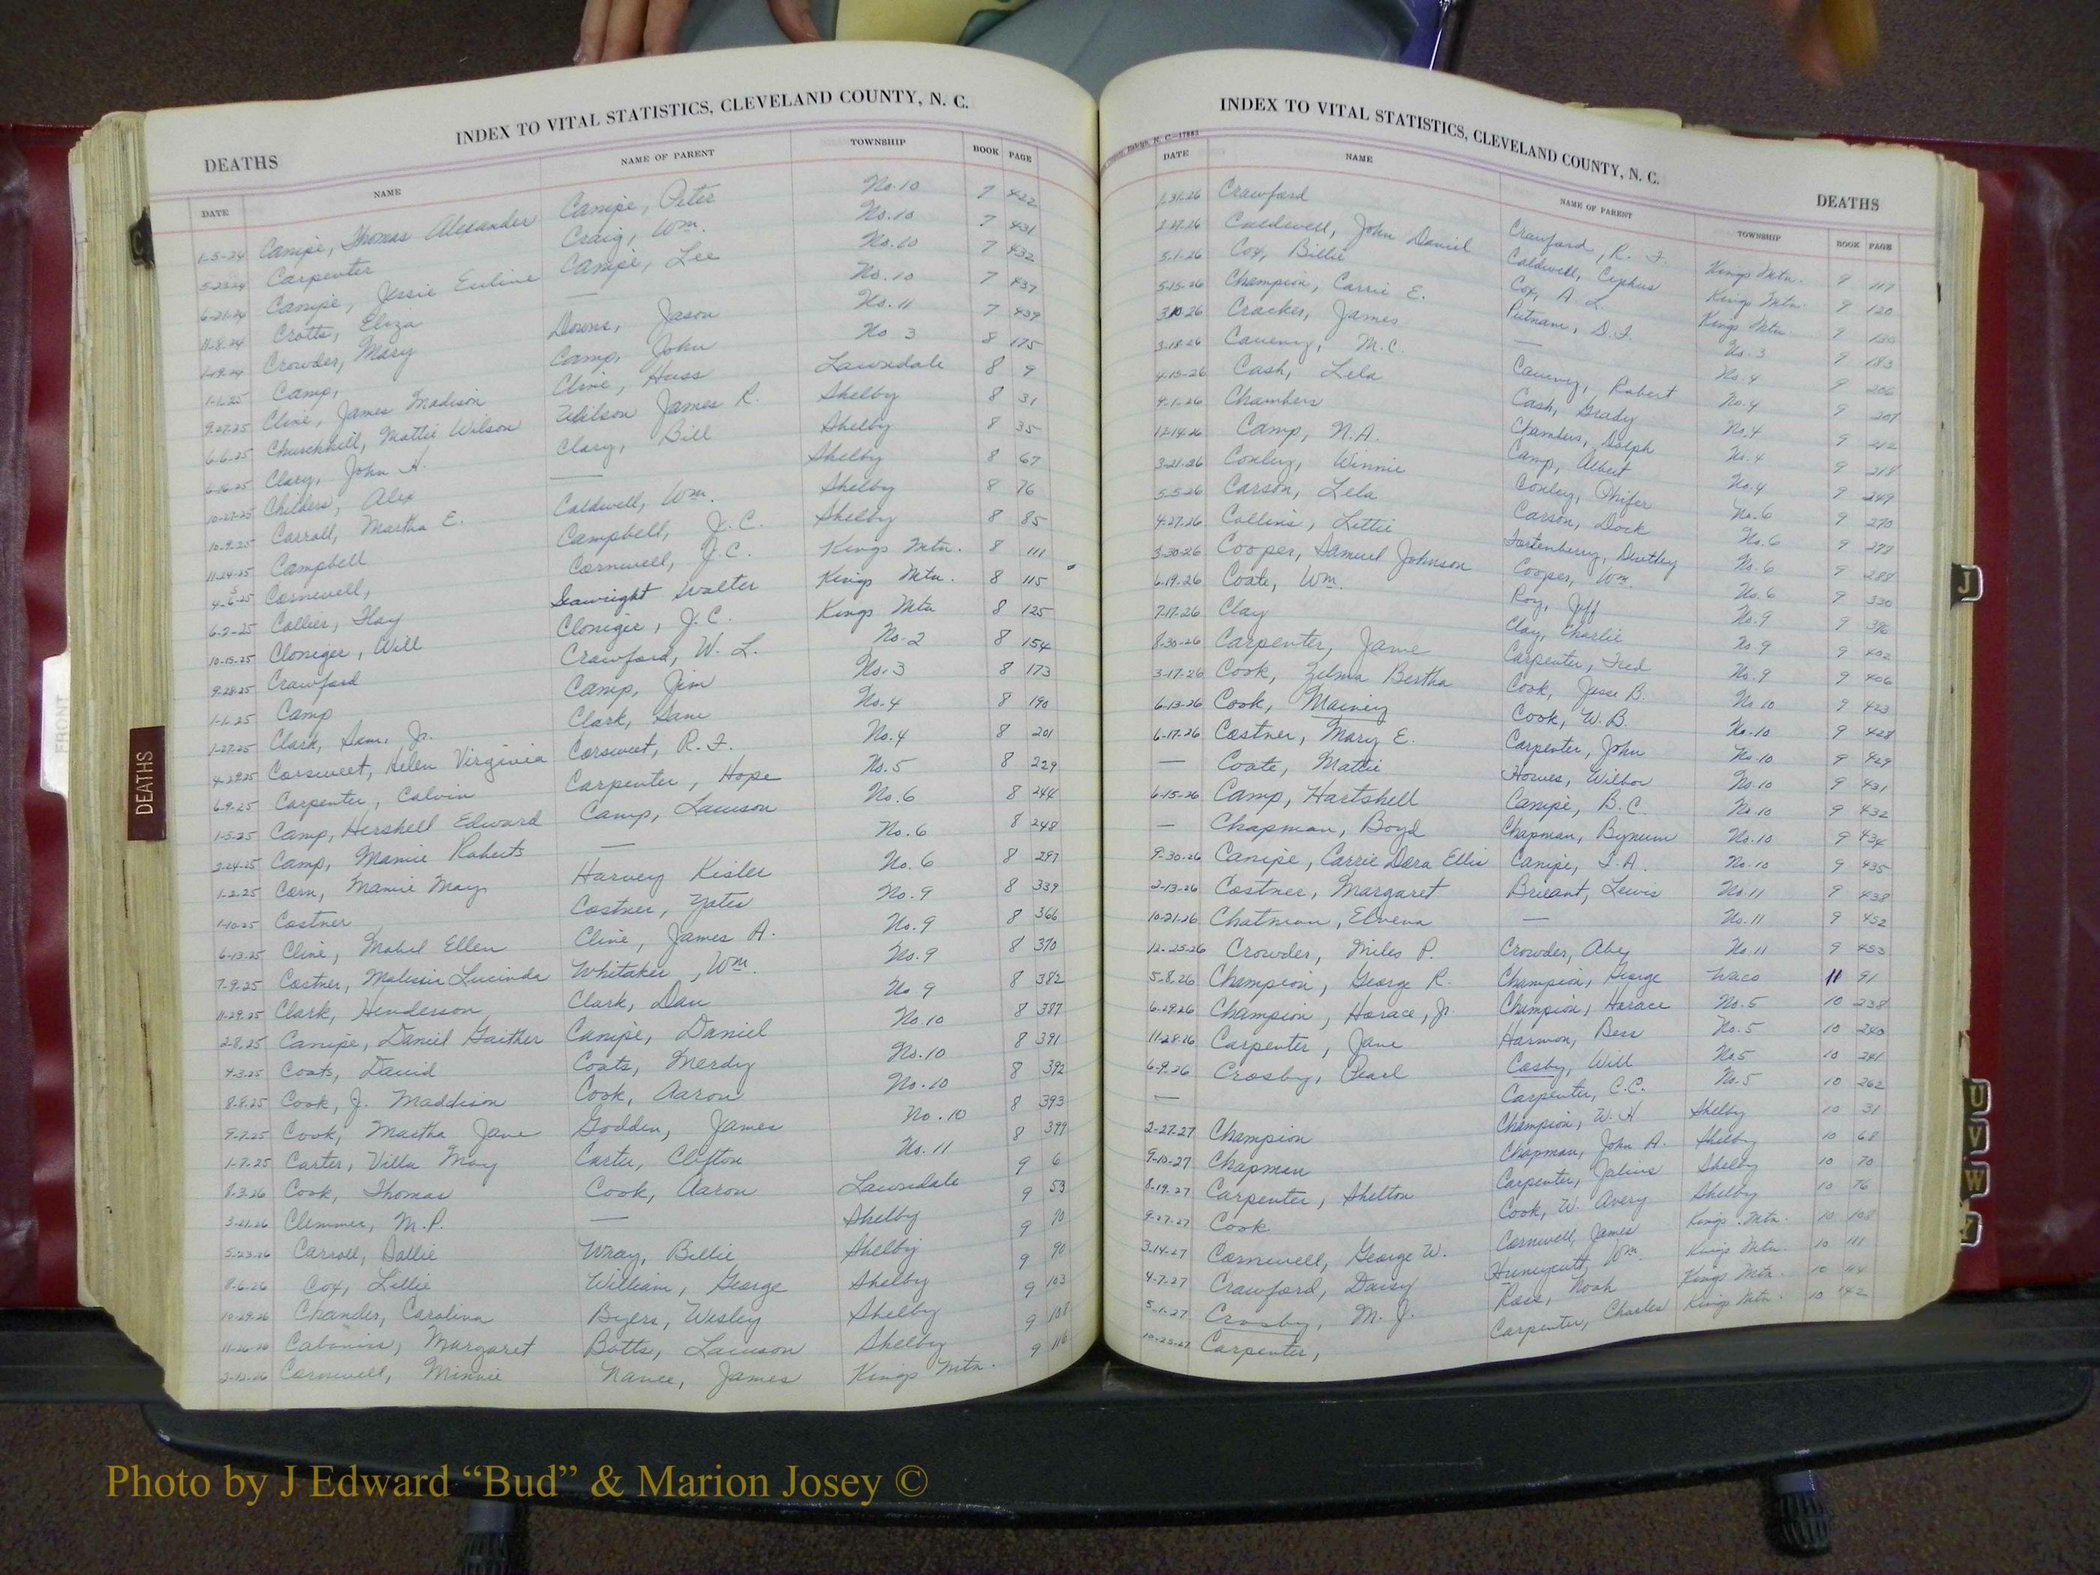 INDEX TO VITAL STATISTICS, CLEVELAND COUNTY, N. C.
DEATHS
DATE NAME NAME OF PARENT TOWNSHIP BOOK PAGE
1-5-24 Canipe, Thomas Alexander Canipe, Peter No.10 7 422
5-23-24 Carpenter Craig, Wm. No.10 7 431
6-21-24 Canipe, Jessie Euline Canipe, Lee No.10 7 432
11-8-24 Crotts, Eliza — No.10 7 437
1-19-24 Crowder, Mary Downs, Jason No.11 7 439
1-1-25 Camp, Camp, John No 3 8 175
9-27-25 Cline, James Madison Cline, Huss Lawndale 8 9
6-6-25 Churchhill, Mattie Wilson Wilson James R. Shelby 8 31
6-16-25 Clary, John H. Clary, Bill Shelby 8 35
10-27-25 Childers, Alex — Shelby 8 67
10-9-25 Carroll, Martha E. Caldwell, Wm. Shelby 8 76
11-24-25 Campbell Campbell, J.C. Shelby 8 85
4-6-25 Cornwell, Cornwell, J.C. Kings Mtn. 8 111
6-2-25 Collier, Flay Seawright Walter Kings Mtn. 8 115
10-15-25 Cloniger, Will Cloniger, J.C. Kings Mtn 8 125
9-28-25 Crawford Crawford, W. L. No.2 8 154
1-1-25 Camp Camp, Jim No.3 8 173
1-27-25 Clark, Sam, Jr. Clark, Sam No.4 8 190
4-29-25 Corsweet, Helen Virginia Corsweet, R.F. No.4 8 201
6-9-25 Carpenter, Calvin Carpenter, Hope No.5 8 229
1-5-25 Camp, Hershell Edward Camp, Lawson No.6 8 244
3-24-25 Camp, Mamie Roberts — No.6 8 248
1-2-25 Corn, Mamie May Harvey Kisler No.6 8 297
1-10-25 Costner Costner, Yates No.9 8 339
6-13-25 Cline, Mabel Ellen Cline, James A. No.9 8 366
7-9-25 Costner, Malissie Lucinda Whitaker, Wm. No.9 8 370
11-29-25 Clark, Henderson Clark, Dan No 9 8 382
2-8-25 Canipe, Daniel Gaither Canipe, Daniel No.10 8 387
4-3-25 Coats, David Coats, Merdy No.10 8 391
8-8-25 Cook, J. Maddison Cook, Aaron No.10 8 392
9-7-25 Cook, Martha Jane Godden, James No.10 8 393
1-7-25 Carter, Villa May Carter, Clifton No.11 8 399
8-3-26 Cook, Thomas Cook, Aaron Lawndale 9 6
3-21-26 Clemmer, M.P. — Shelby 9 53
5-23-26 Carroll, Sallie Wray, Billie Shelby 9 70
8-6-26 Cox, Lillie William, George Shelby 9 90
10-29-26 Chander, Carolina Byers, Wesley Shelby 9 103
11-26-26 Cabaniss, Margaret Botts, Lawson Shelby 9 108
2-12-26 Cornwell, Minnie Nance, James Kings Mtn. 9 116
INDEX TO VITAL STATISTICS, CLEVELAND COUNTY, N. C.
DEATHS
DATE NAME NAME OF PARENT TOWNSHIP BOOK PAGE
1-31-26 Crawford Crawford, R. F. Kings Mtn. 9 117
2-27-26 Caldwell, John Daniel Caldwell, Cephus Kings Mtn. 9 120
5-1-26 Cox, Billie Cox, A L. Kings Mtn. 9 130
5-15-26 Champion, Carrie E. Putnam, D.F. No.3 9 183
3-10-26 Cracker, James — No.4 9 206
3-18-26 Causey, M.C. Causey, Robert No.4 9 207
4-15-26 Cash, Lela Cash, Grady No.4 9 212
4-1-26 Chambers Chambers, Dolph No.4 9 218
12-14-26 Camp, N.A. Camp, Albert No.4 9 249
3-21-26 Conley, Winnie Conley, Phifer No.6 9 270
5-5-26 Carson, Lela Carson, Dock No.6 9 277
4-27-26 Collins, Lettie Fortenberry, No.6 9 288
3-30-26 Cooper, Samuel Johnson Cooper, Wm. No.6 9 330
6-19-26 Coate, Wm. Roy, Jeff No.9 9 396
7-17-26 Clay Clay, Charlie No 9 9 402
8-30-26 Carpenter, Jame Carpenter, Fred No.9 9 406
3-17-26 Cook, Zelma Bertha Cook, Jesse B. No 10 9 423
6-13-26 Cook, Mainey Cook, W.B. No.10 9 428
6-17-26 Costner, Mary E. Carpenter, John No 10 9 429
— Coate, Mattie Howes, Wilbor No.10 9 431
6-15-26 Camp, Hartshell Canipe, B.C. No.10 9 432
— Chapman, Boyd Chapman, Bynum No.10 9 434
9-30-26 Canipe, Carrie Dora Ellis Canipe, T.A. No.10 9 435
2-13-26 Costner, Margaret Brieant, Lewis No.11 9 438
10-21-26 Chatman, Elvena — No.11 9 452
12-25-26 Crowder, Miles P. Crowder, Abey No.11 9 453
5-8-26 Champion, George R. Champion, George Waco 11 91
6-29-26 Champion, Horace, Jr. Champion, Horace No.5 10 238
11-28-26 Carpenter, Jane Harmon, Bess No.5 10 240
6-9-26 Crosby, Pearl Cosby, Will No.5 10 241
— Carpenter, C.C. No.5 10 262
2-27-27 Champion Champion, W.H Shelby 10 31
9-10-27 Chapman Chapman, John A. Shelby 10 68
8-19-27 Carpenter, Shelton Carpenter, Julius Shelby 10 70
9-27-27 Cook Cook, W. Avery Shelby 10 76
3-14-27 Cornwell, George W. Cornwell, James Kings Mtn. 10 108
4-7-27 Crawford, Daisy Huneycutt, Wm. Kings Mtn. 10 111
5-1-27 Crosby, M. J. Ross, Noah Kings Mtn. 10 114
10-25-27 Carpenter, Carpenter, Charles Kings Mtn. 10 142
DEATHS
FRONT
C
J
U
V
W
Photo by J Edward “Bud” & Marion Josey ©